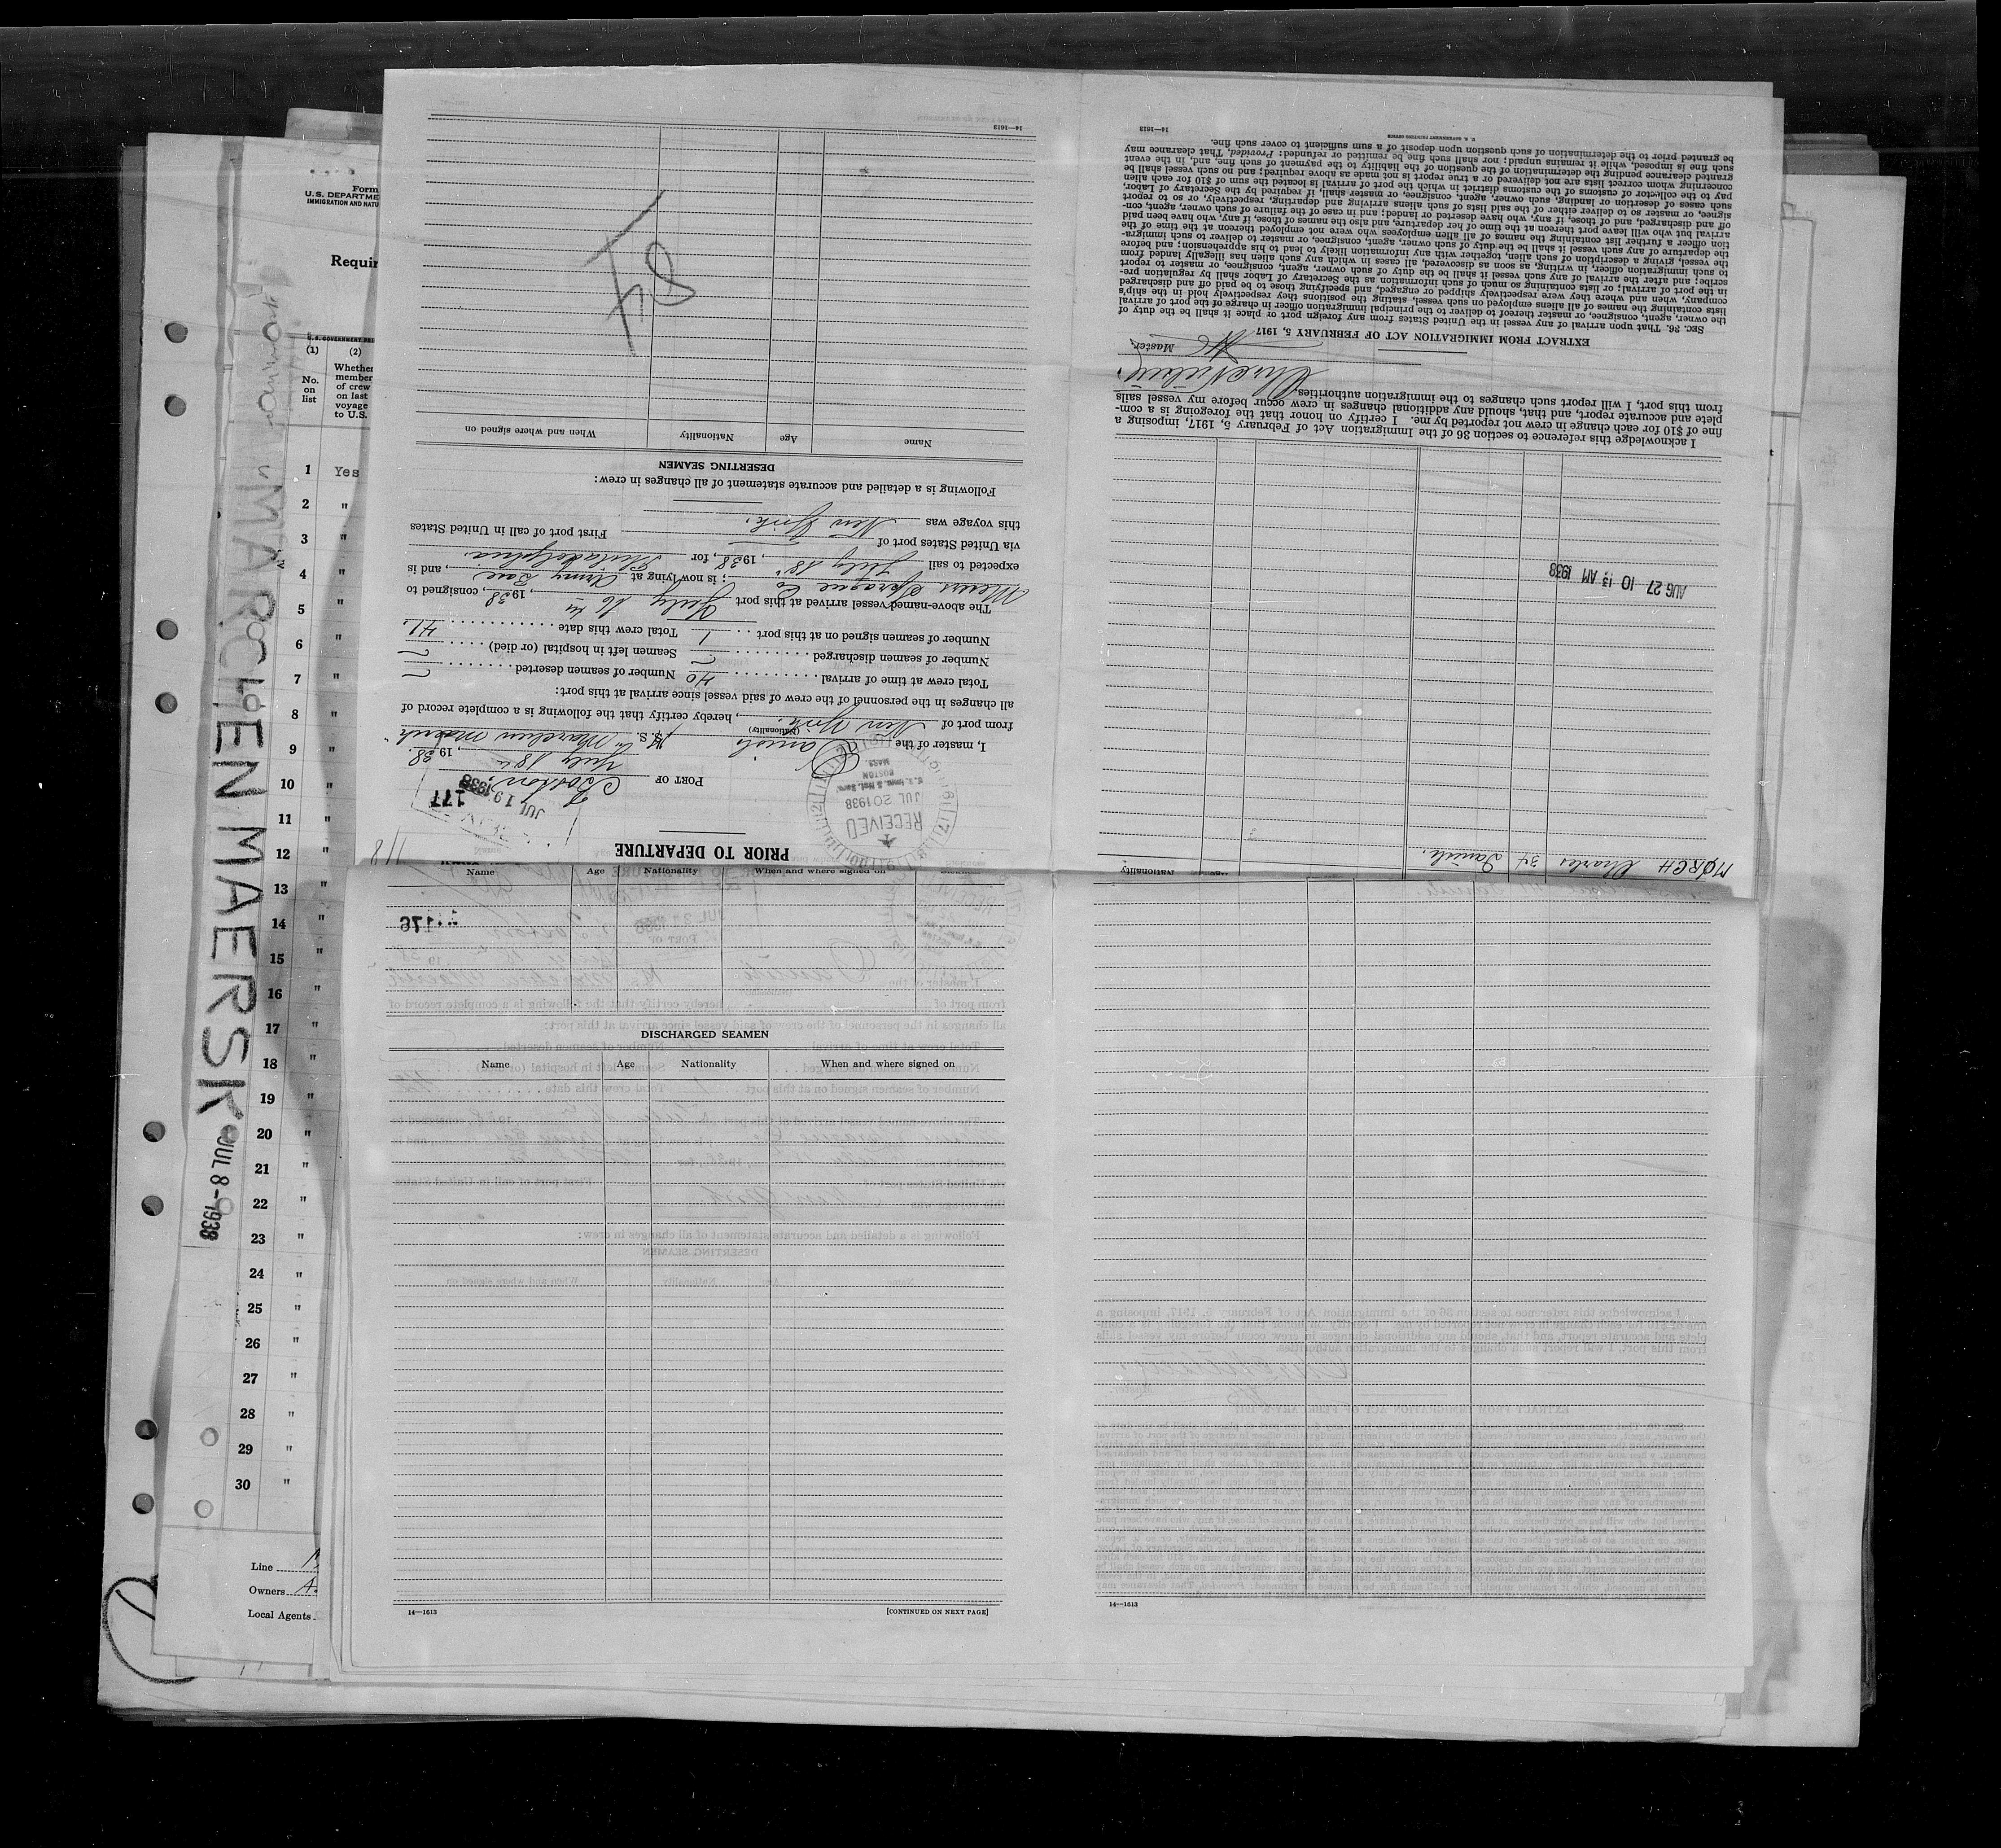 Form
U.S. DEPARTME
IMMIGRATION AND NATU
Requir
U.S. GOVERNMENT PRI
(1)
(2)
No.
on
list
Whether
member
of crew
on last
voyage
to U.S.
1 Yes
2 "
3 "
4 "
5 "
6 "
7 "
8 "
9 "
10 "
11 "
12 "
13 "
14 "
15 "
16 "
17 "
18 "
19 "
20 "
21 "
22 "
23 "
24 "
25 "
26 "
27 "
28 "
29 "
30 "
Line
Owners A.
Local Agents
"MARCHEN MAERSK
JUL 8 - 1938
PRIOR TO DEPARTURE
118
177
JUL 19 1938
RECEIVED
JUL 20 1938
BOSTON
MASS
PORT OF Boston,
July 18th, 1938
I, master of the Danish M/S. Marchen Maersk
(Nationality)
from port of New York, hereby certify that the following is a complete record of
all changes in the personnel of the crew of said vessel since arrival at this port:
Total crew at time of arrival 40 Number of seamen deserted —
Number of seamen discharged — Seamen left in hospital (or died) —
Number of seamen signed on at this port 1 Total crew this date 41.
The above-named vessel arrived at this port July 16th, 1938, consigned to
Messrs Sprague Co; is now lying at Army Base, and is
expected to sail July 18th, 1938, for Philadelphia
via United States port of — First port of call in United States
this voyage was New York.
Following is a detailed and accurate statement of all changes in crew:
DESERTING SEAMEN
Name Age Nationality When and where signed on
14—1613
MØRCH Charles 34 Danish.
Nationality
AUG 27 10 13 AM 1938
I acknowledge this reference to section 36 of the Immigration Act of February 5, 1917, imposing a
fine of $10 for each change in crew not reported by me. I certify on honor that the foregoing is a com-
plete and accurate report, and that, should any additional changes in crew occur before my vessel sails
from this port, I will report such changes to the immigration authorities.
Master.
EXTRACT FROM IMMIGRATION ACT OF FEBRUARY 5, 1917
Sec. 36. That upon arrival of any vessel in the United States from any foreign port or place it shall be the duty of
the owner, agent, consignee, or master thereof to deliver to the principal immigration officer in charge of the port of arrival
lists containing the names of all aliens employed on such vessel, stating the positions they respectively hold in the ship's
company, when and where they were respectively shipped or engaged, and specifying those to be paid off and discharged
in the port of arrival; or lists containing so much of such information as the Secretary of Labor shall by regulation pre-
scribe; and after the arrival of any such vessel it shall be the duty of such owner, agent, consignee, or master to report
to such immigration officer, in writing, as soon as discovered, all cases in which any such alien has illegally landed from
the vessel, giving a description of such alien, together with any information likely to lead to his apprehension; and before
the departure of any such vessel it shall be the duty of such owner, agent, consignee, or master to deliver to such immigra-
tion officer a further list containing the names of all alien employees who were not employed thereon at the time of the
arrival but who will leave port thereon at the time of her departure, and also the names of those, if any, who have been paid
off and discharged, and of those, if any, who have deserted or landed; and in case of the failure of such owner, agent, con-
signee, or master so to deliver either of the said lists of such aliens arriving and departing, respectively, or so to report
such cases of desertion or landing, such owner, agent, consignee, or master shall, if required by the Secretary of Labor,
pay to the collector of customs of the customs district in which the port of arrival is located the sum of $10 for each alien
concerning whom correct lists are not delivered or a true report is not made as above required; and no such vessel shall be
granted clearance pending the determination of the question of the liability to the payment of such fine, and, in the event
such fine is imposed, while it remains unpaid; nor shall such fine be remitted or refunded: Provided, That clearance may
be granted prior to the determination of such question upon deposit of a sum sufficient to cover such fine.
U. S. GOVERNMENT PRINTING OFFICE
14—1613
Name Age Nationality When and where signed on
176
DISCHARGED SEAMEN
Name Age Nationality When and where signed on
14—1613
[CONTINUED ON NEXT PAGE]
14—1613